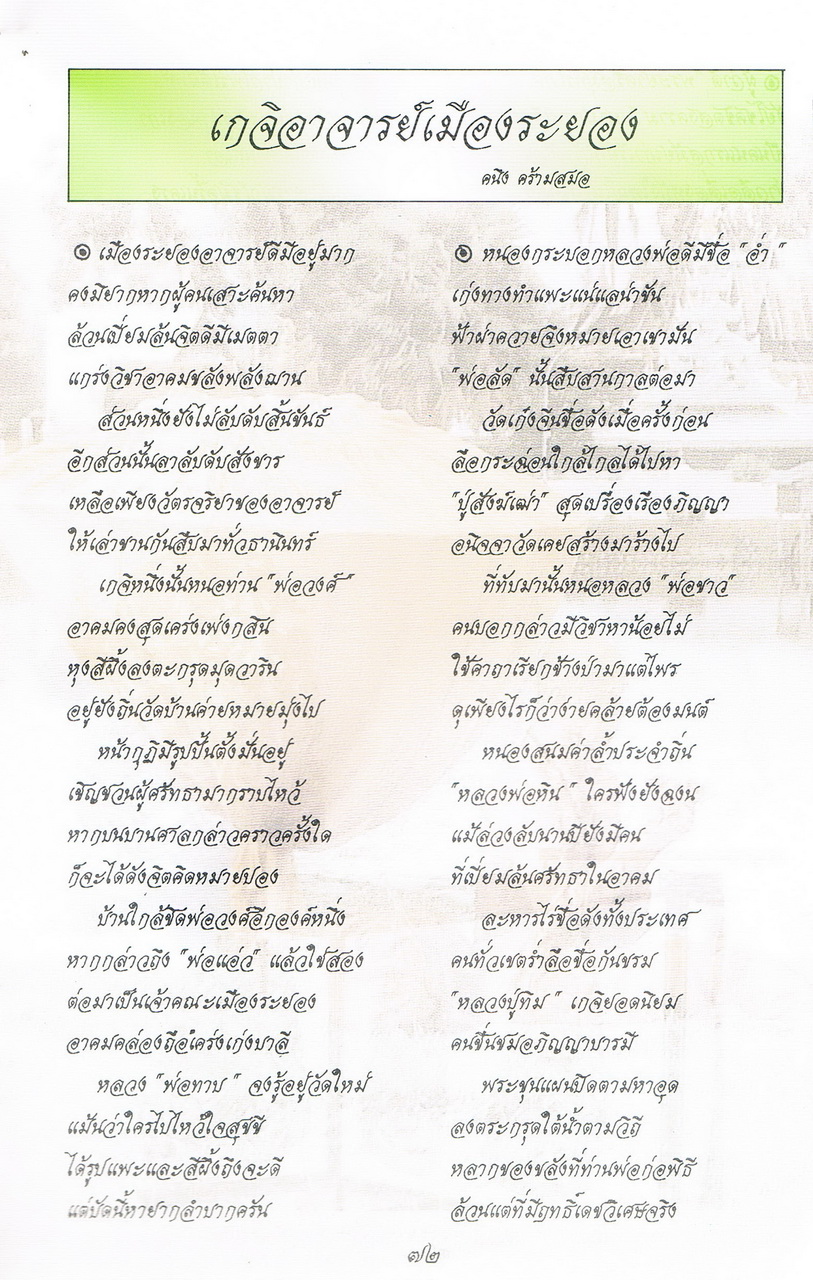 เกจิอาจารย์เมืองระยอง
คนึง คร้ามสมอ
๏ เมืองระยองอาจารย์ดีมีอยู่มาก
คงมิยากหากผู้คนเสาะค้นหา
ล้วนเปี่ยมล้นจิตดีมีเมตตา
แกร่งวิชาอาคมขลังพลังฌาน
ส่วนหนึ่งยังไม่ลับดับสิ้นขันธ์
อีกส่วนนั้นลาลับดับสังขาร
เหลือเพียงวัตรจริยาของอาจารย์
ให้เล่าขานกันสืบมาทั่วธานินทร์
เกจิหนึ่งนั้นหนอท่าน "พ่อวงศ์"
อาคมคงสุดเคร่งเพ่งกสิน
หุงสีผึ้งลงตะกรุดมุดวาริน
อยู่ยังถิ่นวัดบ้านค่ายหมายมุ่งไป
หน้ากุฏิมีรูปปั้นตั้งมั่นอยู่
เชิญชวนผู้ศรัทธามากราบไหว้
หากบนบานศาลกล่าวคราวครั้งใด
ก็จะได้ดังจิตคิดหมายปอง
บ้านใกล้ชิดพ่อวงศ์อีกองค์หนึ่ง
หากกล่าวถึง "พ่อแอ่ว" แล้วใช่สอง
ต่อมาเป็นเจ้าคณะเมืองระยอง
อาคมคล่องถือเคร่งเก่งบาลี
หลวง "พ่อทาบ" จงรู้อยู่วัดใหม่
แม้นว่าใครไปไหว้ใจสุขขี
ได้รูปแพะและสีผึ้งถึงจะดี
แต่ปัดนี้หายากลำบากครัน
๏ หนองกระบอกหลวงพ่อดีมีชื่อ "อ่ำ"
เก่งทางทำแพะแน่แลน่าขัน
ฟ้าผ่าควายจึงหมายเอาเขามัน
"พ่อลัด" นั้นสืบสานกาลต่อมา
วัดเก๋งจีนชื่อดังเมื่อครั้งก่อน
ลือกระฉ่อนใกล้ไกลได้ไปหา
"ปู่สังฆ์เฒ่า" สุดเปรื่องเรืองภิญญา
อนิจจาวัดเคยสร้างมาร้างไป
ที่ทับมานั้นหนอหลวง "พ่อขาว"
คนบอกกล่าวมีวิชาหาน้อยไม่
ใช้คาถาเรียกช้างป่ามาแต่ไพร
ดุเพียงไรก็ว่าง่ายคล้ายต้องมนต์
หนองสนมค่าล้ำประจำถิ่น
"หลวงพ่อหิน" ใครฟังยังฉงน
แม้ล่วงลับนานปียังมีคน
ที่เปี่ยมล้นศรัทธาในอาคม
ละหารไร่ชื่อดังทั้งประเทศ
คนทั่วเขตร่ำลือชื่อกันขรม
"หลวงปู่ทิม" เกจิยอดนิยม
คนชื่นชมอภิญญาบารมี
พระขุนแผนปิดตามหาอุด
ลงตระกรุดใต้น้ำตามวิถี
หลากของขลังที่ท่านพ่อก่อพิธี
ล้วนแต่ที่มีฤทธิ์เดชวิเศษจริง
๗๒